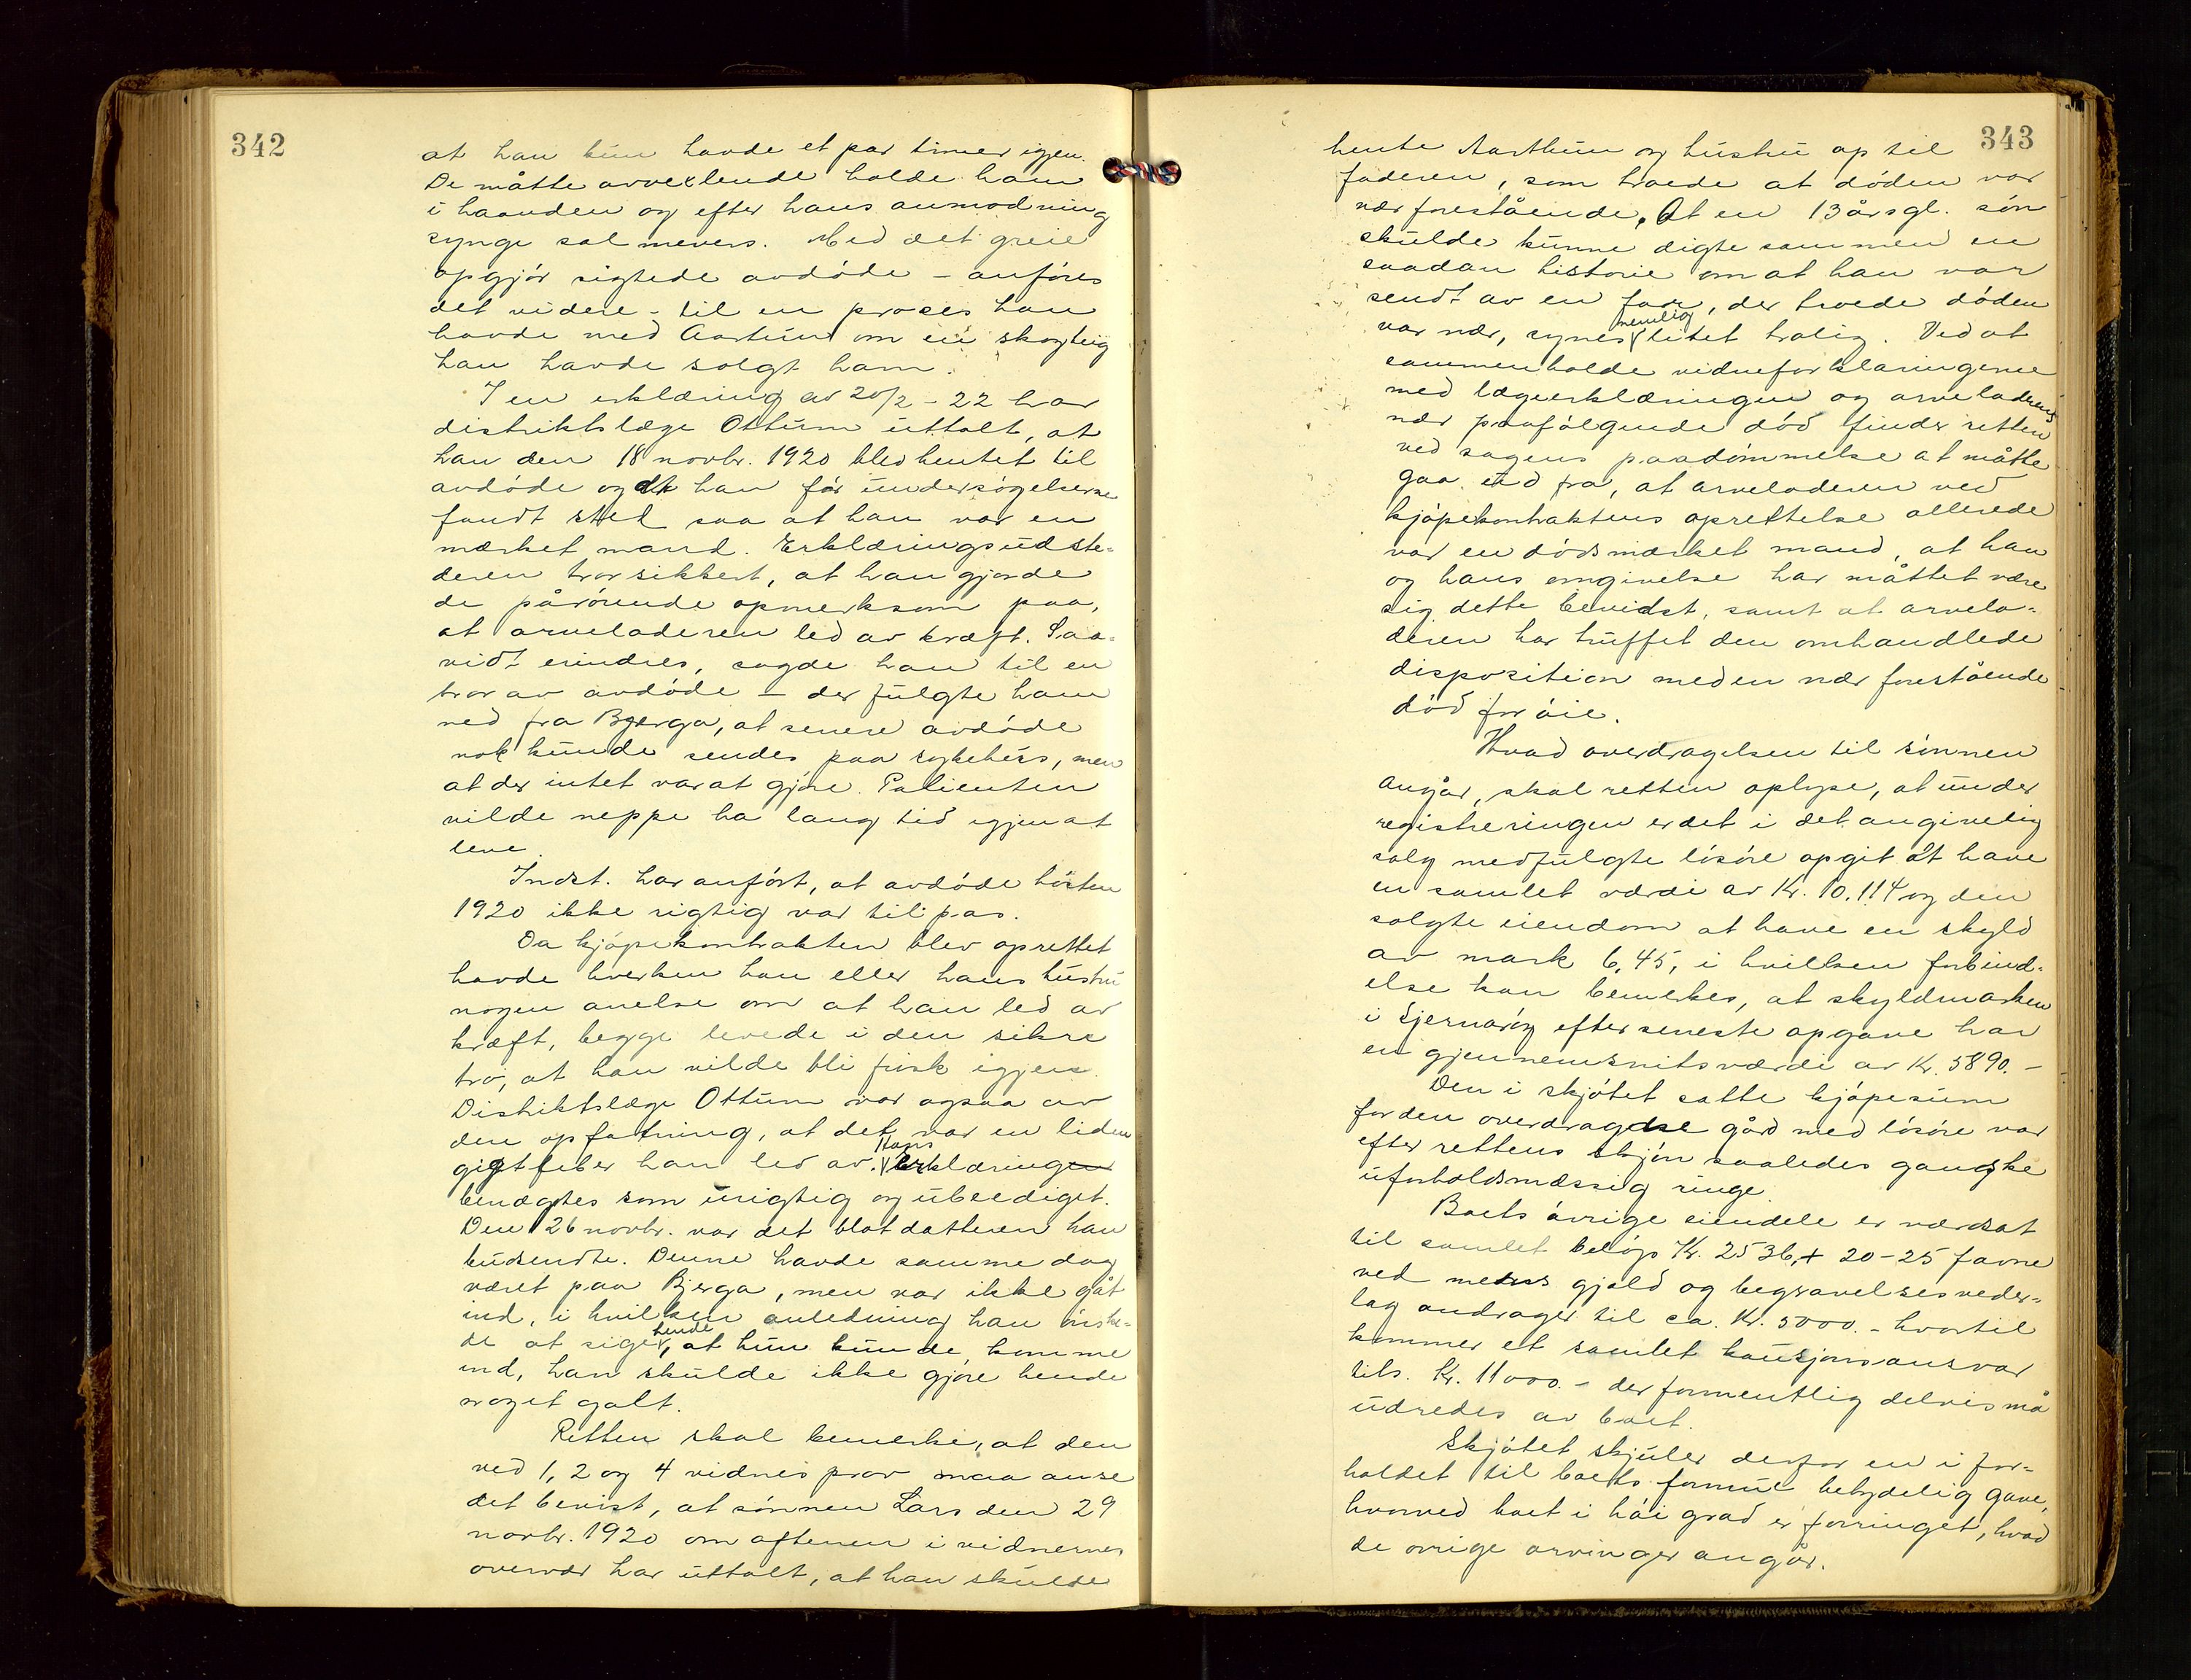 342
at han kun havde et par timer igjen.
De måtte avvexlende holde ham
i haanden og efter hans anmodning
synge salmevers. Med det greie
opgjör sigtede avdöde - anföres
det videre - til en proces han
havde med Aartun om en skogteig
han havde solgt ham.
I en erklæring av 20/2 - 22 har
distriktslæge Ottum uttalt, at
han den 18 novbr. 1920 blev hentet til
avdöde og at han før undersögelserne
fandt stel saa at han var en
mærket mand. Erklæringsudste-
deren tror sikkert, at han gjorde
de pårörende opmerksom paa,
at arveladeren led av kræft. Saa-
vidt erindres, sagde han til en
bror av avdöde - der fulgte ham
ned fra Bjerga, at senere avdöde
nok kunde sendes paa sykehus, men
at der intet var at gjöre. Patienten
vilde neppe ha lang tid igjen at
leve.
Indst. har anfört, at avdöde hösten
1920 ikke rigtig var tilpas.
Da kjöpekontrakten blev oprettet
havde hverken han eller hans hustru
nogen anelse om at han led av
kræft, begge levede i den sikre
tro, at han vilde bli frisk igjen.
Distriktslæge Ottum var ogsaa av
den opfatning, at det var en liden
gigtfeber han led av. Hans erklæring
benægtes som urigtig og ubeediget.
Den 26 novbr. var det blot datteren han
budsendte. Denne havde samme dag
været paa Bjerga, men var ikke gåt
ind, i hvilken anledning han önske-
de at sige hende, at hun kunde komme
ind, han skulde ikke gjöre hende
noget galt.
Retten skal bemerke, at den
ved 1, 2 og 4 vidnes prov maa anse
det bevist, at sönnen Lars den 29
novbr. 1920 om aftenen i vidnernes
overvær har uttalt, at han skulde
343
hente Aarthun og hustru op til
faderen, som troede at döden var
nær forestående. At en 13 årsgl. sön
skulde kunne digte sammen en
saadan historie om at han var
sendt av en far, der troede döden
var nær, synes nemlig litet trolig. Ved at
sammenholde vidneforklaringerne
med lægeerklæringen og arveladerens
nær paafölgende död finder retten
ved sagens paadömmelse at måtte
gaa ud fra, at arveladeren ved
kjöpekontraktens oprettelse allerede
var en dödsmærket mand, at han
og hans omgivelse har måttet være
sig dette bevidst, samt at arvela-
deren har truffet den omhandlede
disposition med en nær forestående
död for öie.
Hvad overdragelsen til sönnen
angår, skal retten oplyse, at under
registreringen er det i det angivelig
salg medfulgte lösöre opgit at have
en samlet værdi av Kr. 10.114 og den
solgte eiendom at have en skyld
av mark 6,45, i hvilken forbind-
else kan bemerkes, at skyldmarken
i Sjernaröy efter seneste opgave har
en gjennemsnitsværdi av Kr. 5890.-
Den i skjötet satte kjöpesum
for den overdragne gård med lösöre var
efter rettens skjön saaledes ganske
uforholdsmæssig ringe.
Boets övrige eiendele er værdsat
til samlet belöp Kr. 2536,+ 20-25 favne
ved mens gjeld og begravelsesveder-
lag andrager til ca. Kr. 5000.- hvortil
kommer et samlet kausjonsansvar
tils. Kr. 11000.- der formentlig delvis må
udredes av boet.
Skjötet skjuler derfor en i for-
holdet til boets formue betydelig gave,
hvorved boet i höi grad er forringet, hvad
de övrige arvinger angår.